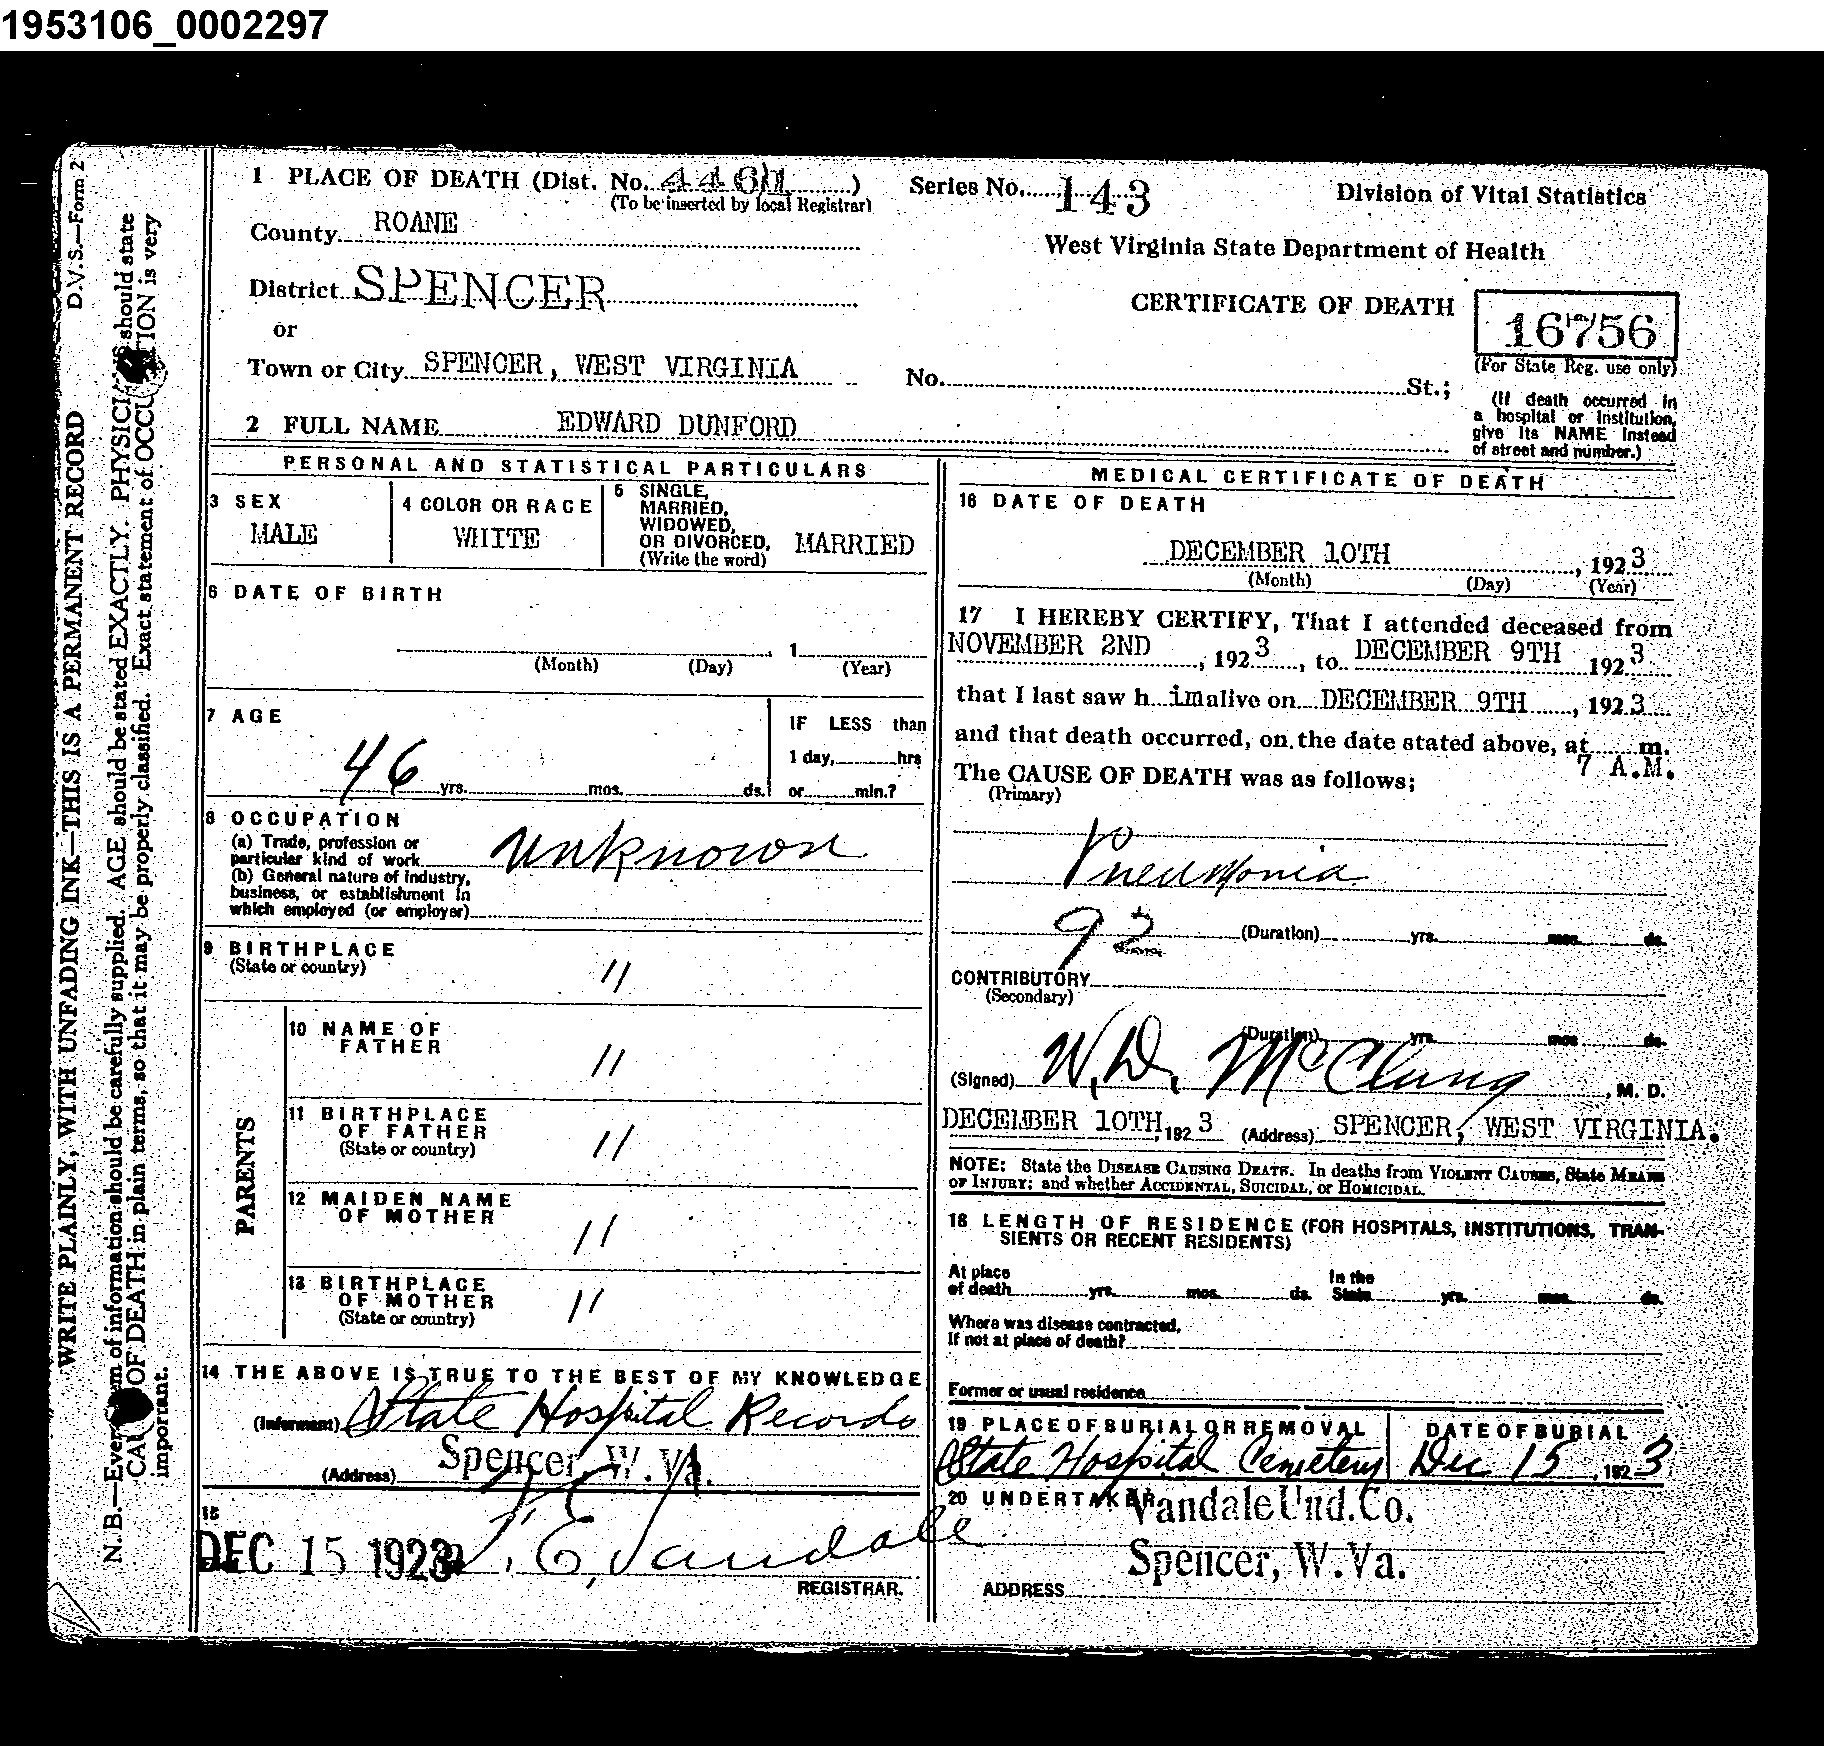 1953106_0002297
D.V.S.—Form 2
WRITE PLAINLY, WITH UNFADING INK—THIS IS A PERMANENT RECORD
N. B.—Every item of information should be carefully supplied. AGE should be stated EXACTLY. PHYSICIANS should state
CAUSE OF DEATH in plain terms, so that it may be properly classified. Exact statement of OCCUPATION is very
important.
1 PLACE OF DEATH (Dist. No. 4461)
(To be inserted by local Registrar)
Series No. 143
Division of Vital Statistics
County ROANE
West Virginia State Department of Health
District SPENCER
CERTIFICATE OF DEATH
16756
(For State Reg. use only)
or
Town or City SPENCER, WEST VIRGINIA
No. St.;
(If death occurred in
a hospital or institution,
give its NAME instead
of street and number.)
2 FULL NAME EDWARD DUNFORD
PERSONAL AND STATISTICAL PARTICULARS
3 SEX
MALE
4 COLOR OR RACE
WHITE
5 SINGLE,
MARRIED,
WIDOWED,
OR DIVORCED,
(Write the word)
MARRIED
6 DATE OF BIRTH
, 1
(Month) (Day) (Year)
7 AGE
46 yrs. mos. ds.
IF LESS than
1 day, hrs
or min.?
8 OCCUPATION
(a) Trade, profession or
particular kind of work unknown
(b) General nature of industry,
business, or establishment in
which employed (or employer)
9 BIRTHPLACE
(State or country) "
PARENTS
10 NAME OF
FATHER "
11 BIRTHPLACE
OF FATHER
(State or country) "
12 MAIDEN NAME
OF MOTHER "
13 BIRTHPLACE
OF MOTHER
(State or country) "
14 THE ABOVE IS TRUE TO THE BEST OF MY KNOWLEDGE
(Informant) State Hospital Records
(Address) Spencer, W. Va.
15
DEC 15 1923 Vandale
REGISTRAR.
MEDICAL CERTIFICATE OF DEATH
16 DATE OF DEATH
DECEMBER 10TH, 1923
(Month) (Day) (Year)
17 I HEREBY CERTIFY, That I attended deceased from
NOVEMBER 2ND, 1923, to DECEMBER 9TH 1923
that I last saw h im alive on DECEMBER 9TH, 1923
and that death occurred, on the date stated above, at m.
7 A.M.
The CAUSE OF DEATH was as follows;
(Primary)
Pneumonia
92 (Duration) yrs. mos. ds.
CONTRIBUTORY
(Secondary)
(Duration) yrs. mos. ds.
(Signed) W. D. McClung, M. D.
DECEMBER 10TH, 1923 (Address) SPENCER, WEST VIRGINIA.
NOTE: State the DISEASE CAUSING DEATH. In deaths from VIOLENT CAUSES, State MEANS
OF INJURY; and whether ACCIDENTAL, SUICIDAL, or HOMICIDAL.
18 LENGTH OF RESIDENCE (FOR HOSPITALS, INSTITUTIONS, TRAN-
SIENTS OR RECENT RESIDENTS)
At place
of death yrs. mos. ds.
In the
State yrs. mos. ds.
Where was disease contracted,
If not at place of death?
Former or usual residence
19 PLACE OF BURIAL OR REMOVAL
State Hospital Cemetery
DATE OF BURIAL
Dec 15, 1923
20 UNDERTAKER Vandale Und. Co.
Spencer, W. Va.
ADDRESS